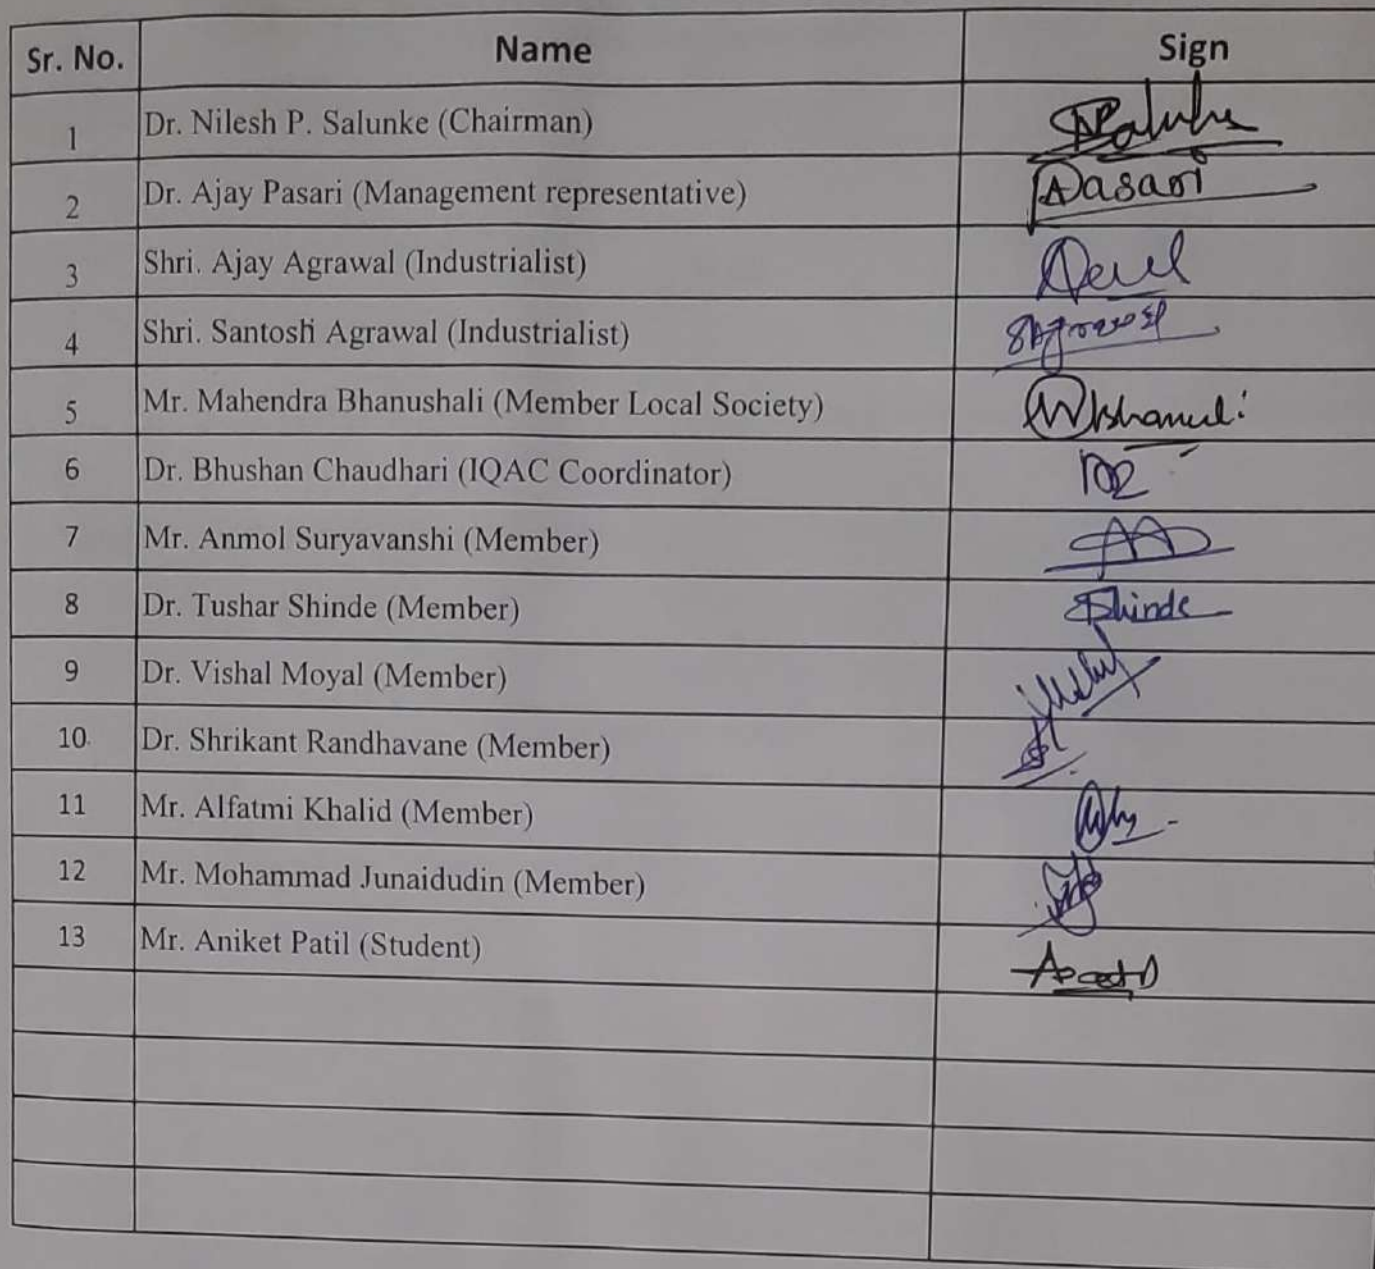 Sr. No. Name Sign
1 Dr. Nilesh P. Salunke (Chairman) NPSalunke
2 Dr. Ajay Pasari (Management representative) APasari
3 Shri. Ajay Agrawal (Industrialist)
4 Shri. Santosh Agrawal (Industrialist) SAgrawal
5 Mr. Mahendra Bhanushali (Member Local Society)
6 Dr. Bhushan Chaudhari (IQAC Coordinator)
7 Mr. Anmol Suryavanshi (Member)
8 Dr. Tushar Shinde (Member) Shinde
9 Dr. Vishal Moyal (Member)
10 Dr. Shrikant Randhavane (Member)
11 Mr. Alfatmi Khalid (Member)
12 Mr. Mohammad Junaidudin (Member)
13 Mr. Aniket Patil (Student)